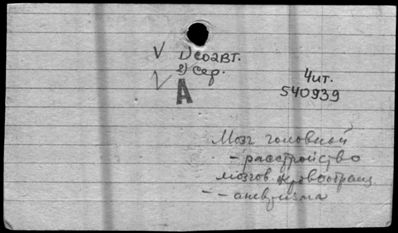 V 1) соавт.
V 2) сер.
А
Чит.
540939
Мозг головной
- расстройство
мозгов. кровообращ.
- - аневризма